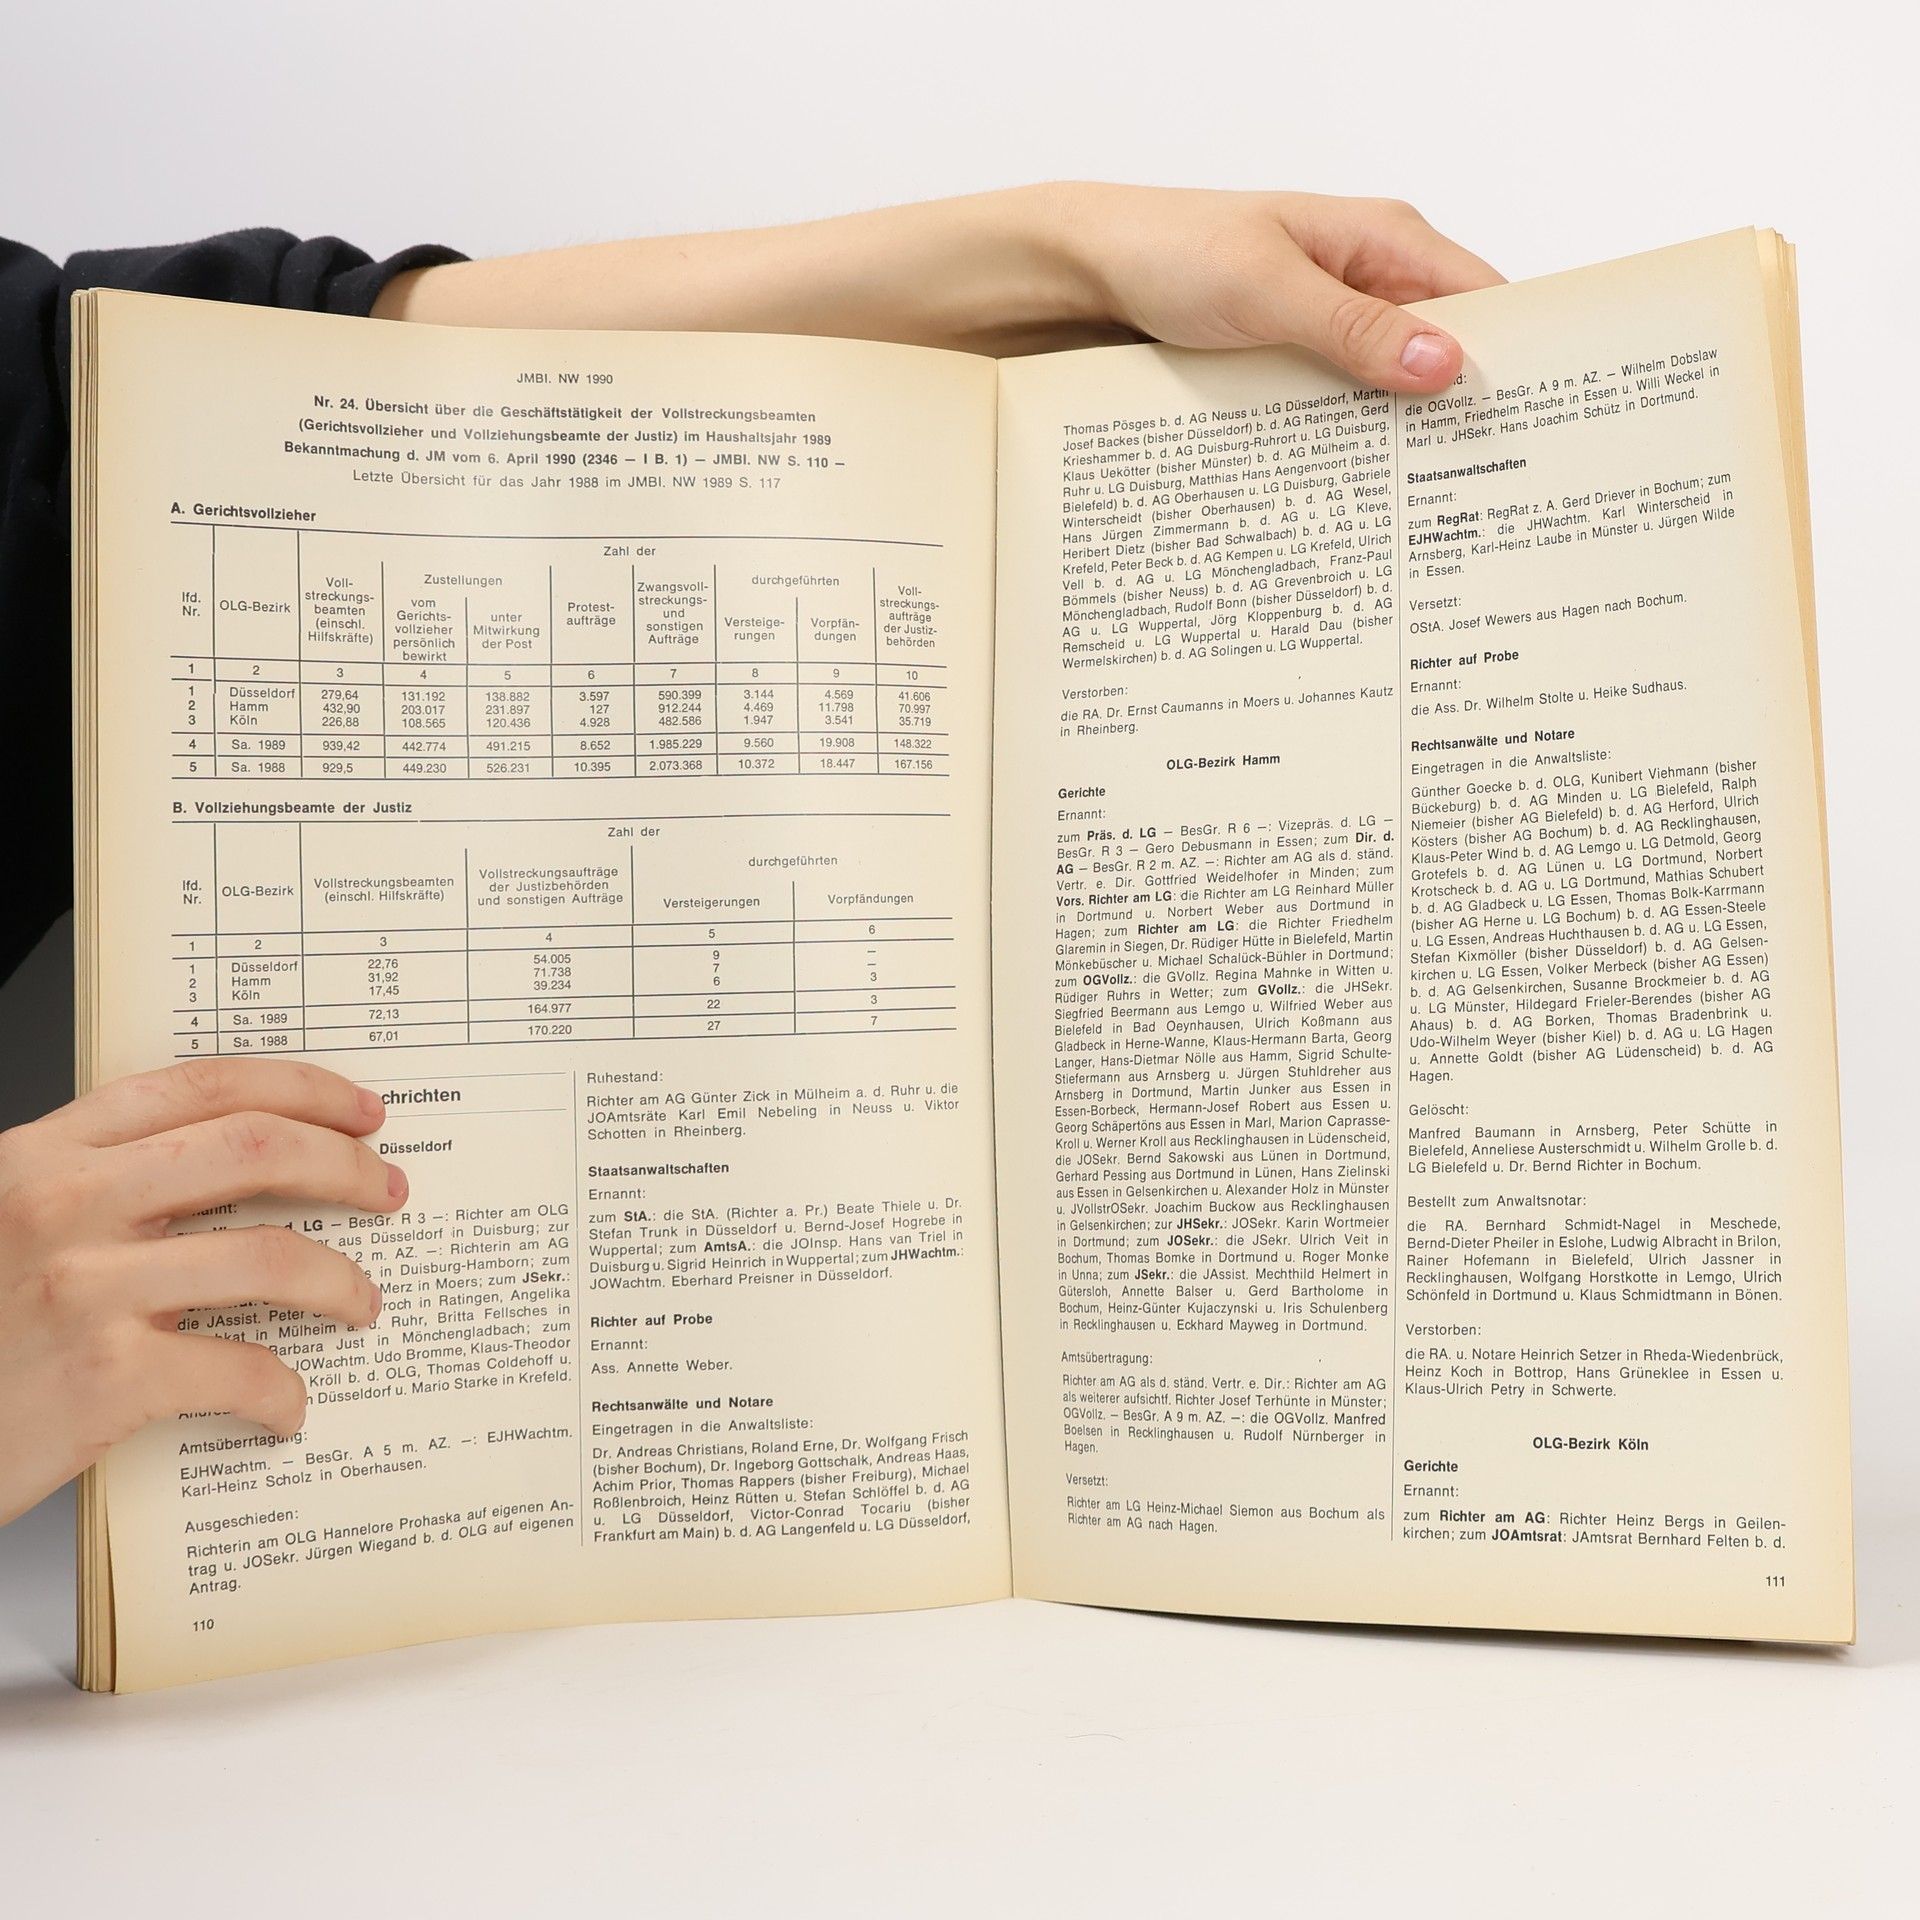 JMBl. NW 1990
Nr. 24. Übersicht über die Geschäftstätigkeit der Vollstreckungsbeamten
(Gerichtsvollzieher und Vollziehungsbeamte der Justiz) im Haushaltsjahr 1989
Bekanntmachung d. JM vom 6. April 1990 (2346 – I B. 1) – JMBl. NW S. 110 –
Letzte Übersicht für das Jahr 1988 im JMBl. NW 1989 S. 117
A. Gerichtsvollzieher
lfd. Nr. OLG-Bezirk Zahl der
Voll-
streckungs-
beamten
(einschl.
Hilfskräfte)
Zustellungen
vom
Gerichts-
vollzieher
persönlich
bewirkt
unter
Mitwirkung
der Post
Protest-
aufträge
Zwangsvoll-
streckungs-
und
sonstigen
Aufträge
durchgeführten
Versteige-
rungen
Vorpfän-
dungen
Voll-
streckungs-
aufträge
der Justiz-
behörden
1 2 3 4 5 6 7 8 9 10
1 Düsseldorf 279,64 131.192 138.882 3.597 590.399 3.144 4.569 41.606
2 Hamm 432,90 203.017 231.897 127 912.244 4.469 11.798 70.997
3 Köln 226,88 108.565 120.436 4.928 482.586 1.947 3.541 35.719
4 Sa. 1989 939,42 442.774 491.215 8.652 1.985.229 9.560 19.908 148.322
5 Sa. 1988 929,5 449.230 526.231 10.395 2.073.368 10.372 18.447 167.156
B. Vollziehungsbeamte der Justiz
lfd. Nr. OLG-Bezirk Zahl der
Vollstreckungsbeamten
(einschl. Hilfskräfte)
Vollstreckungsaufträge
der Justizbehörden
und sonstigen Aufträge
durchgeführten
Versteigerungen Vorpfändungen
1 2 3 4 5 6
1 Düsseldorf 22,76 54.005 9 –
2 Hamm 31,92 71.738 7 –
3 Köln 17,45 39.234 6 3
4 Sa. 1989 72,13 164.977 22 3
5 Sa. 1988 67,01 170.220 27 7
chrichten
Düsseldorf
LG – BesGr. R 3 –: Richter am OLG
aus Düsseldorf in Duisburg; zur
2 m. AZ. –: Richterin am AG
in Duisburg-Hamborn; zum
Merz in Moers; zum JSekr.:
die JAssist. Peter roch in Ratingen, Angelika
in Mülheim a. d. Ruhr, Britta Fellsches in
Barbara Just in Mönchengladbach; zum
JOWachtm. Udo Bromme, Klaus-Theodor
Kröll b. d. OLG, Thomas Coldehoff u.
Düsseldorf u. Mario Starke in Krefeld.
Amtsüberrtagung:
EJHWachtm. – BesGr. A 5 m. AZ. –: EJHWachtm.
Karl-Heinz Scholz in Oberhausen.
Ausgeschieden:
Richterin am OLG Hannelore Prohaska auf eigenen An-
trag u. JOSekr. Jürgen Wiegand b. d. OLG auf eigenen
Antrag.
110
Ruhestand:
Richter am AG Günter Zick in Mülheim a. d. Ruhr u. die
JOAmtsräte Karl Emil Nebeling in Neuss u. Viktor
Schotten in Rheinberg.
Staatsanwaltschaften
Ernannt:
zum StA.: die StA. (Richter a. Pr.) Beate Thiele u. Dr.
Stefan Trunk in Düsseldorf u. Bernd-Josef Hogrebe in
Wuppertal; zum AmtsA.: die JOInsp. Hans van Triel in
Duisburg u. Sigrid Heinrich in Wuppertal; zum JHWachtm.:
JOWachtm. Eberhard Preisner in Düsseldorf.
Richter auf Probe
Ernannt:
Ass. Annette Weber.
Rechtsanwälte und Notare
Eingetragen in die Anwaltsliste:
Dr. Andreas Christians, Roland Erne, Dr. Wolfgang Frisch
(bisher Bochum), Dr. Ingeborg Gottschalk, Andreas Haas,
Achim Prior, Thomas Rappers (bisher Freiburg), Michael
Roßlenbroich, Heinz Rütten u. Stefan Schlöffel b. d. AG
u. LG Düsseldorf, Victor-Conrad Tocariu (bisher
Frankfurt am Main) b. d. AG Langenfeld u. LG Düsseldorf,
Thomas Pösges b. d. AG Neuss u. LG Düsseldorf, Martin
Josef Backes (bisher Düsseldorf) b. d. AG Ratingen, Gerd
Krieshammer b. d. AG Duisburg-Ruhrort u. LG Duisburg,
Klaus Uekötter (bisher Münster) b. d. AG Mülheim a. d.
Ruhr u. LG Duisburg, Matthias Hans Aengenvoort (bisher
Bielefeld) b. d. AG Oberhausen u. LG Duisburg, Gabriele
Winterscheidt (bisher Oberhausen) b. d. AG Wesel,
Hans Jürgen Zimmermann b. d. AG u. LG Kleve,
Heribert Dietz (bisher Bad Schwalbach) b. d. AG u. LG
Krefeld, Peter Beck b. d. AG Kempen u. LG Krefeld, Ulrich
Vell b. d. AG u. LG Mönchengladbach, Franz-Paul
Bömmels (bisher Neuss) b. d. AG Grevenbroich u. LG
Mönchengladbach, Rudolf Bonn (bisher Düsseldorf) b. d.
AG u. LG Wuppertal, Jörg Kloppenburg b. d. AG
Remscheid u. LG Wuppertal u. Harald Dau (bisher
Wermelskirchen) b. d. AG Solingen u. LG Wuppertal.
Verstorben:
die RA. Dr. Ernst Caumanns in Moers u. Johannes Kautz
in Rheinberg.
OLG-Bezirk Hamm
Gerichte
Ernannt:
zum Präs. d. LG – BesGr. R 6 –: Vizepräs. d. LG –
BesGr. R 3 – Gero Debusmann in Essen; zum Dir. d.
AG – BesGr. R 2 m. AZ. –: Richter am AG als d. ständ.
Vertr. e. Dir. Gottfried Weidelhofer in Minden; zum
Vors. Richter am LG: die Richter am LG Reinhard Müller
in Dortmund u. Norbert Weber aus Dortmund in
Hagen; zum Richter am LG: die Richter Friedhelm
Glaremin in Siegen, Dr. Rüdiger Hütte in Bielefeld, Martin
Mönkebüscher u. Michael Schalück-Bühler in Dortmund;
zum OGVollz.: die GVollz. Regina Mahnke in Witten u.
Rüdiger Ruhrs in Wetter; zum GVollz.: die JHSekr.
Siegfried Beermann aus Lemgo u. Wilfried Weber aus
Bielefeld in Bad Oeynhausen, Ulrich Koßmann aus
Gladbeck in Herne-Wanne, Klaus-Hermann Barta, Georg
Langer, Hans-Dietmar Nölle aus Hamm, Sigrid Schulte-
Stiefermann aus Arnsberg u. Jürgen Stuhldreher aus
Arnsberg in Dortmund, Martin Junker aus Essen in
Essen-Borbeck, Hermann-Josef Robert aus Essen u.
Georg Schäpertöns aus Essen in Marl, Marion Caprasse-
Kroll u. Werner Kroll aus Recklinghausen in Lüdenscheid,
die JOSekr. Bernd Sakowski aus Lünen in Dortmund,
Gerhard Pessing aus Dortmund in Lünen, Hans Zielinski
aus Essen in Gelsenkirchen u. Alexander Holz in Münster
u. JVollstrOSekr. Joachim Buckow aus Recklinghausen
in Gelsenkirchen; zur JHSekr.: JOSekr. Karin Wortmeier
in Dortmund; zum JOSekr.: die JSekr. Ulrich Veit in
Bochum, Thomas Bomke in Dortmund u. Roger Monke
in Unna; zum JSekr.: die JAssist. Mechthild Helmert in
Gütersloh, Annette Balser u. Gerd Bartholome in
Bochum, Heinz-Günter Kujaczynski u. Iris Schulenberg
in Recklinghausen u. Eckhard Mayweg in Dortmund.
Amtsübertragung:
Richter am AG als d. ständ. Vertr. e. Dir.: Richter am AG
als weiterer aufsichtf. Richter Josef Terhünte in Münster;
OGVollz. – BesGr. A 9 m. AZ. –: die OGVollz. Manfred
Boelsen in Recklinghausen u. Rudolf Nürnberger in
Hagen.
Versetzt:
Richter am LG Heinz-Michael Siemon aus Bochum als
Richter am AG nach Hagen.
die OGVollz. – BesGr. A 9 m. AZ. – Wilhelm Dobslaw
in Hamm, Friedhelm Rasche in Essen u. Willi Weckel in
Marl u. JHSekr. Hans Joachim Schütz in Dortmund.
Staatsanwaltschaften
Ernannt:
zum RegRat: RegRat z. A. Gerd Driever in Bochum; zum
EJHWachtm.: die JHWachtm. Karl Winterscheid in
Arnsberg, Karl-Heinz Laube in Münster u. Jürgen Wilde
in Essen.
Versetzt:
OStA. Josef Wewers aus Hagen nach Bochum.
Richter auf Probe
Ernannt:
die Ass. Dr. Wilhelm Stolte u. Heike Sudhaus.
Rechtsanwälte und Notare
Eingetragen in die Anwaltsliste:
Günther Goecke b. d. OLG, Kunibert Viehmann (bisher
Bückeburg) b. d. AG Minden u. LG Bielefeld, Ralph
Niemeier (bisher AG Bielefeld) b. d. AG Herford, Ulrich
Kösters (bisher AG Bochum) b. d. AG Recklinghausen,
Klaus-Peter Wind b. d. AG Lemgo u. LG Detmold, Georg
Grotefels b. d. AG Lünen u. LG Dortmund, Norbert
Krotscheck b. d. AG u. LG Dortmund, Mathias Schubert
b. d. AG Gladbeck u. LG Essen, Thomas Bolk-Karrmann
(bisher AG Herne u. LG Bochum) b. d. AG Essen-Steele
u. LG Essen, Andreas Huchthausen b. d. AG u. LG Essen,
Stefan Kixmöller (bisher Düsseldorf) b. d. AG Gelsen-
kirchen u. LG Essen, Volker Merbeck (bisher AG Essen)
b. d. AG Gelsenkirchen, Susanne Brockmeier b. d. AG
u. LG Münster, Hildegard Frieler-Berendes (bisher AG
Ahaus) b. d. AG Borken, Thomas Bradenbrink u.
Udo-Wilhelm Weyer (bisher Kiel) b. d. AG u. LG Hagen
u. Annette Goldt (bisher AG Lüdenscheid) b. d. AG
Hagen.
Gelöscht:
Manfred Baumann in Arnsberg, Peter Schütte in
Bielefeld, Anneliese Austerschmidt u. Wilhelm Grolle b. d.
LG Bielefeld u. Dr. Bernd Richter in Bochum.
Bestellt zum Anwaltsnotar:
die RA. Bernhard Schmidt-Nagel in Meschede,
Bernd-Dieter Pheiler in Eslohe, Ludwig Albracht in Brilon,
Rainer Hofemann in Bielefeld, Ulrich Jassner in
Recklinghausen, Wolfgang Horstkotte in Lemgo, Ulrich
Schönfeld in Dortmund u. Klaus Schmidtmann in Bönen.
Verstorben:
die RA. u. Notare Heinrich Setzer in Rheda-Wiedenbrück,
Heinz Koch in Bottrop, Hans Grüneklee in Essen u.
Klaus-Ulrich Petry in Schwerte.
OLG-Bezirk Köln
Gerichte
Ernannt:
zum Richter am AG: Richter Heinz Bergs in Geilen-
kirchen; zum JOAmtsrat: JAmtsrat Bernhard Felten b. d.
111